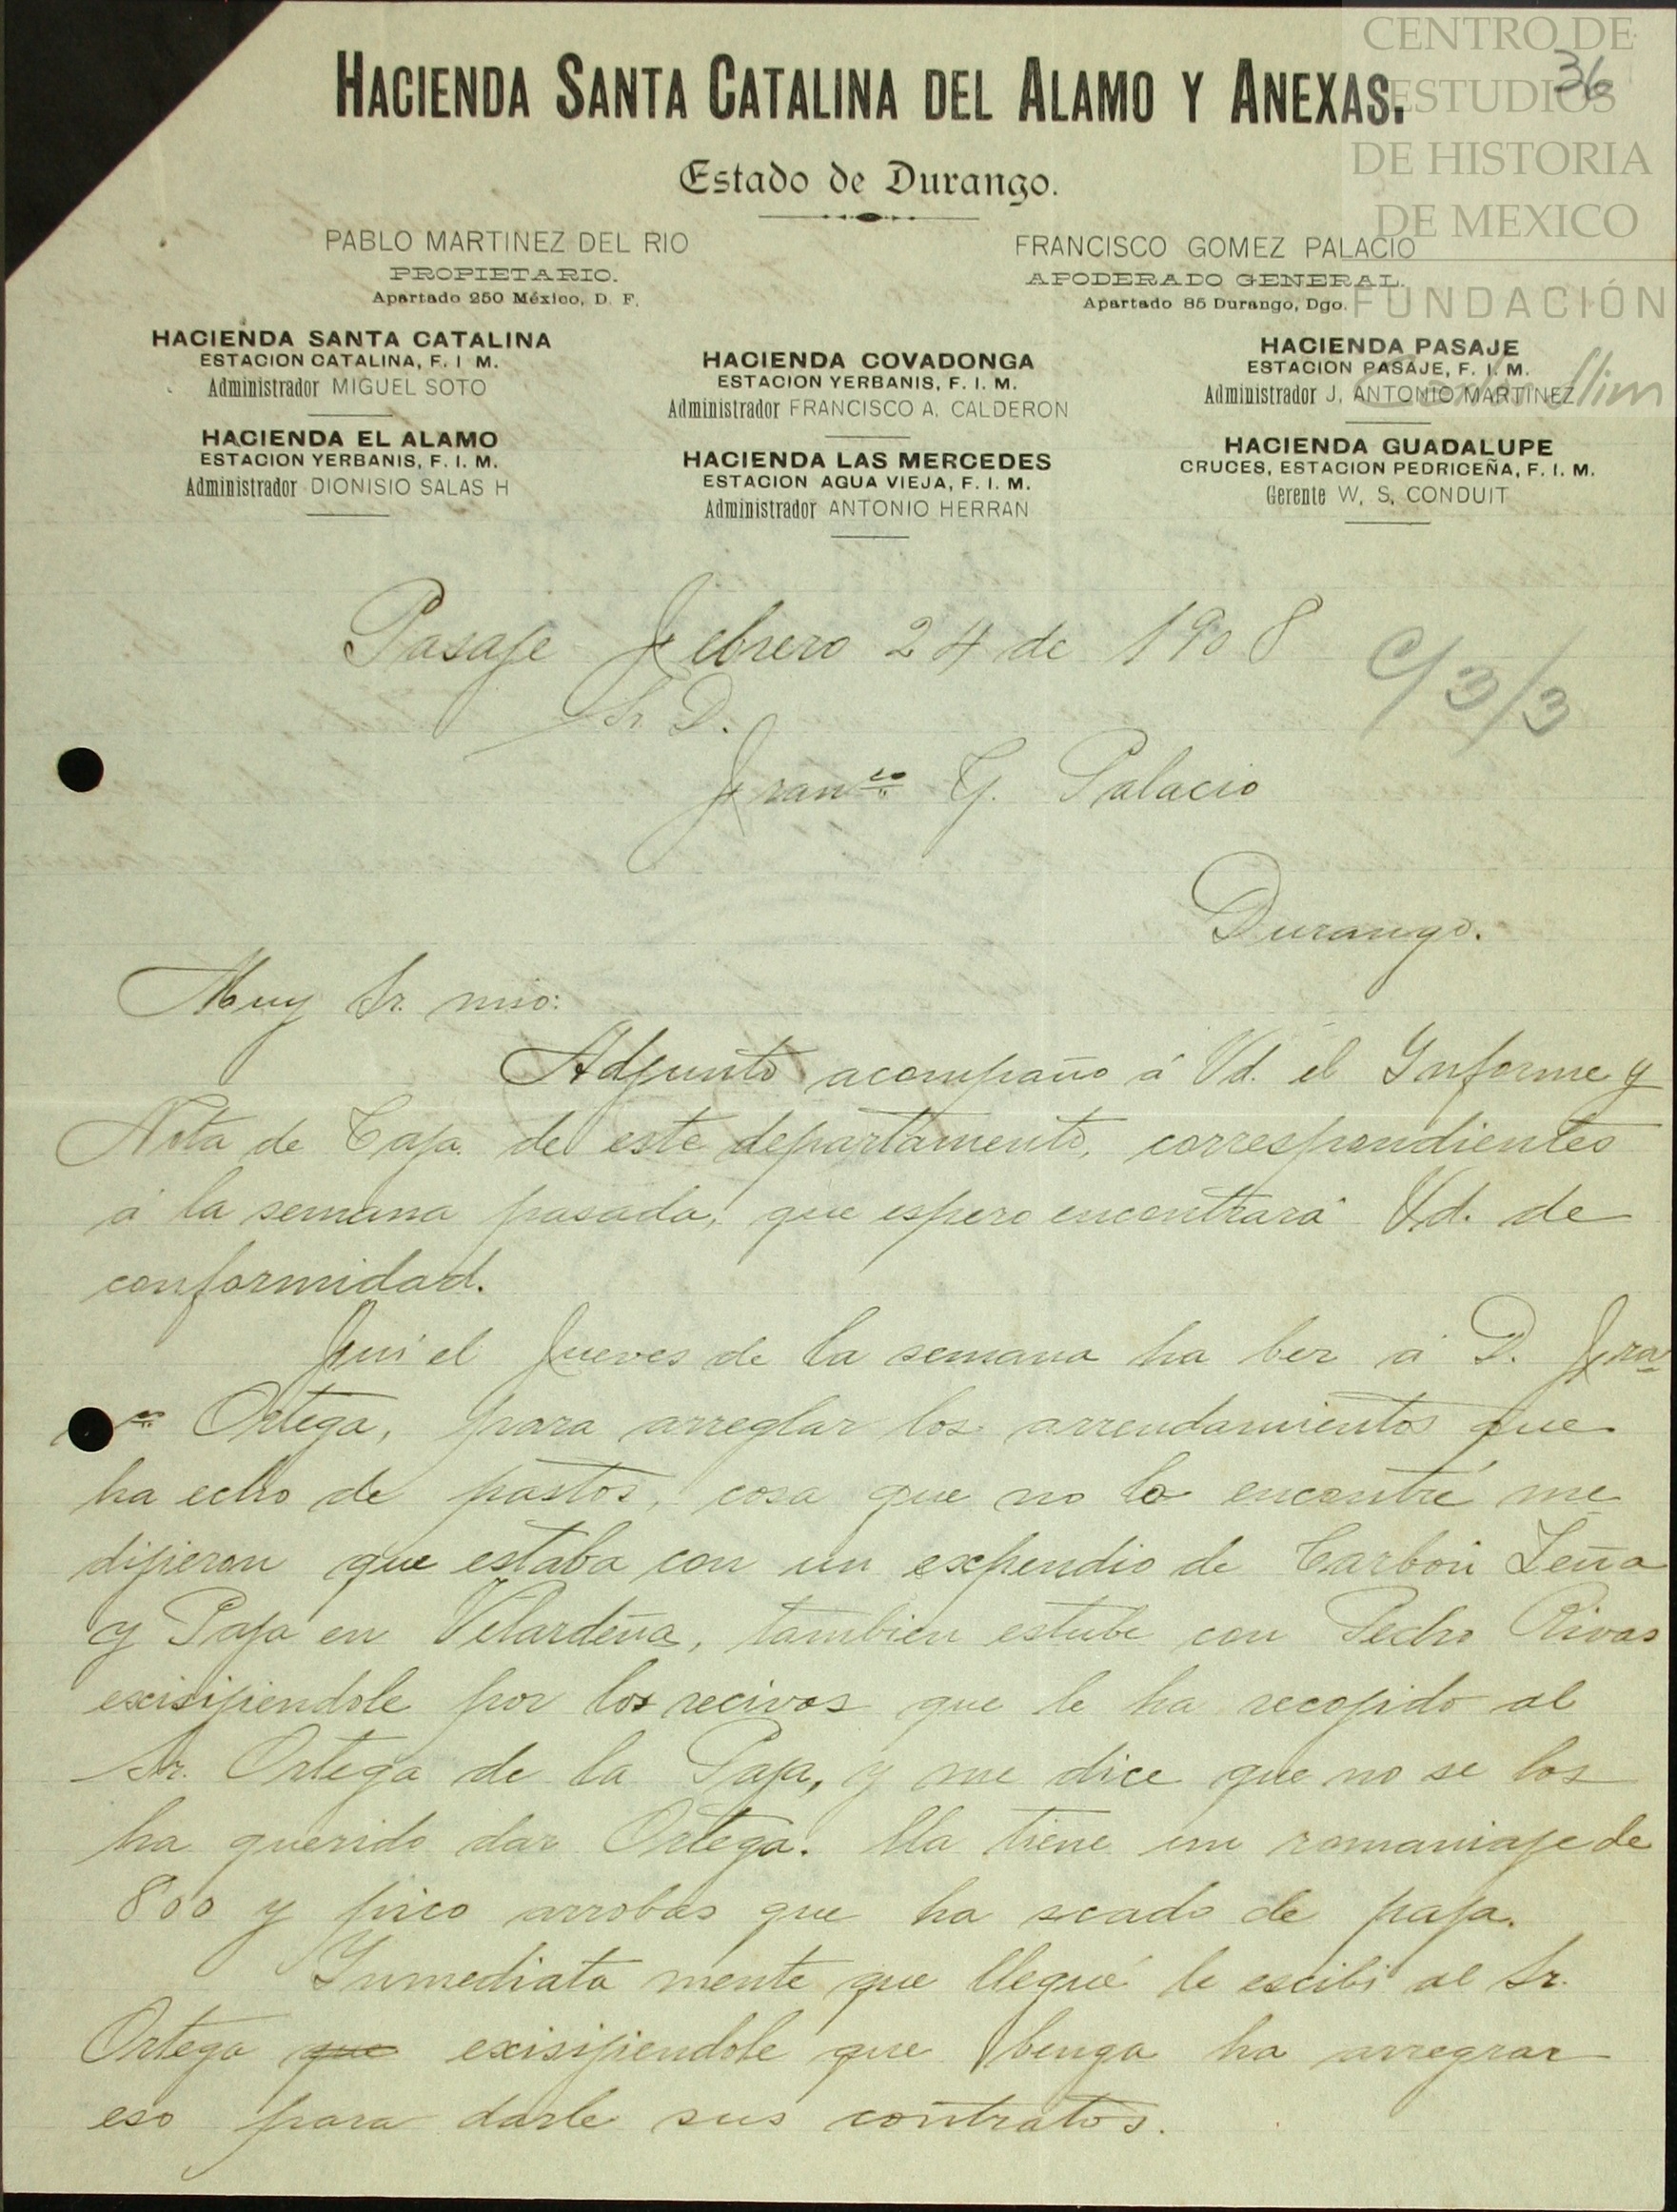 CENTRO DE
ESTUDIOS
DE HISTORIA
DE MEXICO
FUNDACIÓN
Carlos Slim
36
HACIENDA SANTA CATALINA DEL ALAMO Y ANEXAS.
Estado de Durango.
PABLO MARTINEZ DEL RIO
PROPIETARIO.
Apartado 250 México, D. F.
FRANCISCO GOMEZ PALACIO
APODERADO GENERAL.
Apartado 85 Durango, Dgo.
HACIENDA SANTA CATALINA
ESTACION CATALINA, F. I M.
Administrador MIGUEL SOTO
HACIENDA EL ALAMO
ESTACION YERBANIS, F. I. M.
Administrador DIONISIO SALAS H
HACIENDA COVADONGA
ESTACION YERBANIS, F. I. M.
Administrador FRANCISCO A. CALDERON
HACIENDA LAS MERCEDES
ESTACION AGUA VIEJA, F. I. M.
Administrador ANTONIO HERRAN
HACIENDA PASAJE
ESTACION PASAJE, F. I. M.
Administrador J. ANTONIO MARTINEZ
HACIENDA GUADALUPE
CRUCES, ESTACION PEDRICEÑA, F. I. M.
Gerente W. S. CONDUIT
Pasaje Febrero 24 de 1908
C/3/3
Sr. D.
Franco. G. Palacio
Durango.
Muy Sr. mio:
Adjunto acompaño á Vd. el Informe y
Nota de Caja de este departamento, correspondientes
á la semana pasada, que espero encontrará Vd. de
conformidad.
Fuí el Jueves de la semana ha ber á D. Fran
co. Ortega, para arreglar los arrendamientos que
ha echo de pastos, cosa que no lo encontré me
dijieron que estaba con un expendio de Carbón Leña
y Paja en Velardeña, tambien estube con Pedro Rivas
exisijiendole por los recivos que le ha recojido al
Sr. Ortega de la Paja, y me dice que no se los
ha querido dar Ortega. Lla tiene un romaniaje de
800 y pico arrobas que ha scado de paja.
Inmediata mente que llegué le escibí al Sr.
Ortega que exisijiendole que benga ha arregrar
eso para darle sus contratos.